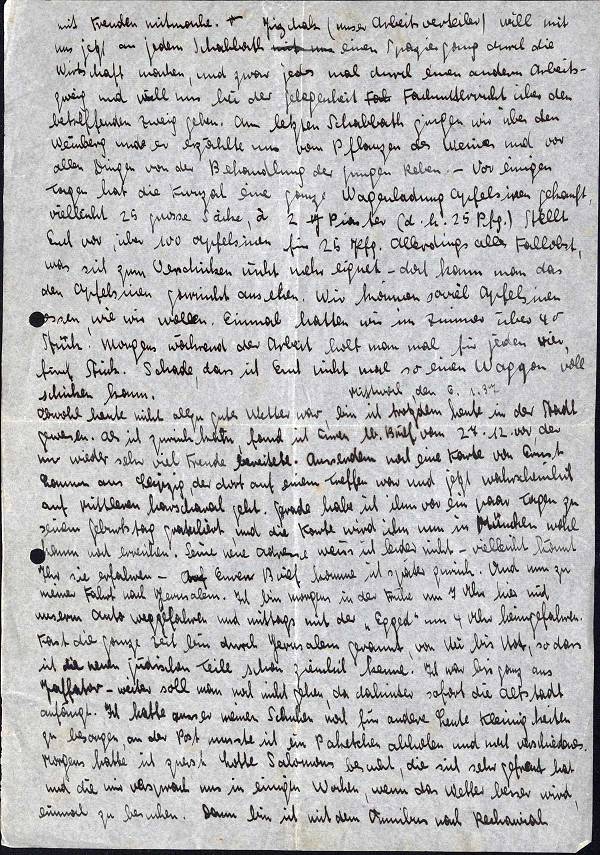 mit Freuden mitmache. Jizchak (unser Arbeitsverteiler) will mit
uns jetzt an jedem Schabbath einen Spaziergang durch die
Wirtschaft machen, und zwar jedes mal durch einen anderen Arbeits-
zweig und will uns bei der Gelegenheit Fachunterricht über den
betreffenden Zweig geben. Am letzten Schabbath gingen wir über den
Weinberg und er erzählte uns vom Pflanzen des Weines und vor
allen Dingen von der Behandlung der jungen Reben. - Vor einigen
Tagen hat die Kwuzah eine ganze Wagenladung Apfelsinen gekauft,
vielleicht 25 grosse Säcke, à 2 Piaster (d. h. 25 Pfg.) Stellt
Euch vor, über 100 Apfelsinen für 25 Pfg. Allerdings alles Fallobst,
was sich zum Verschicken nicht mehr eignet - doch kann man das
den Apfelsinen garnicht ansehen. Wir können soviel Apfelsinen
essen, wie wir wollen. Einmal hatten wir im Zimmer über 40
Stück. Morgens während der Arbeit holt man mal für jeden vier,
fünf Stück. Schade, dass ich Euch nicht mal so einen Waggon voll
schicken kann.
Mittwoch, den 6. 1. 37
Obwohl heute nicht allzu gutes Wetter war, bin ich trotzdem heute in der Stadt
gewesen. Als ich zurück kam, fand ich Euren lb. Brief vom 27.12. vor der
mir wieder sehr viel Freude bereitete. Ausserdem noch eine Karte von Ernst
aus Leipzig der dort auf einem Treffen war und jetzt wahrscheinlich
auf mittleren Hachscharah geht. Gerade habe ich ihm vor ein paar Tagen zu
seinem Geburtstag gratuliert, und die Karte wird ihn nun in München wohl
kaum noch erreichen. Seine neue Adresse weiss ich leider nicht - vielleicht könnt
Ihr sie erfahren - Auf Euren Brief komme ich später zurück. Und nun zu
meiner Fahrt nach Jerusalem. Ich bin morgens in der Frühe um 7 Uhr hier mit
unserem Auto weggefahren und mittags mit der "Egged" um 4 Uhr heimgefahren.
Fast die ganze Zeit bin durch Jerusalem gerannt, von Süd bis Nord, so dass
ich die neuen jüdischen Teile schon ziemlich kenne. Ich war bis ganz ans
Jaffator - weiter soll man noch nicht gehen, da dahinter sofort die Altstadt
anfängt. Ich hatte ausser meinen Schuhen noch für andere Leute Kleinigkeiten
zu besorgen an der Post musste ich ein Paketchen abholen und noch verschiedenes.
Morgens hatte ich zuerst Lotte Salomons besucht, die sich sehr gefreut hat
und die mir versprach uns in einigen Wochen, wenn das Wetter besser wird,
einmal zu besuchen. Dann bin ich mit dem Omnibus nach Rechawiah